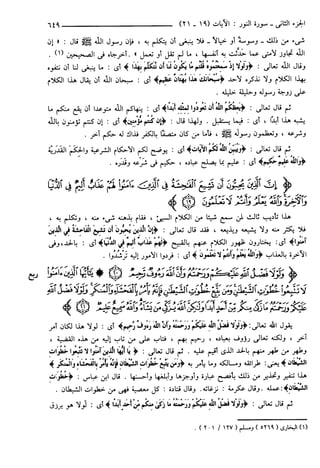 الجزء الثاني - سورة النور : الآيات (١٩ ـ ٢١) ٦٤٩
شيء من ذلك ـ وسوسة أو خيالًا ـ فلا ينبغي أن يتكلم به ، فإن رسول الله ﷺ قال : « إن
الله تجاوز لأمتي عما حدَّثت به أنفسها ، ما لم تقل أو تعمل » . أخرجاه في الصحيحين (١) .
وقال الله تعالى : ﴿وَلَوْلَا إِذْ سَمِعْتُمُوهُ قُلْتُم مَّا يَكُونُ لَنَا أَن نَّتَكَلَّمَ بِهَٰذَا﴾ أي : ما ينبغي لنا أن نتفوه
بهذا الكلام ولا نذكره لأحد ﴿سُبْحَانَكَ هَٰذَا بُهْتَانٌ عَظِيمٌ﴾ أي : سبحان الله أن يقال هذا الكلام
على زوجة رسوله وحليلة خليله .
ثم قال تعالى : ﴿يَعِظُكُمُ اللَّهُ أَن تَعُودُوا لِمِثْلِهِ أَبَدًا﴾ أي : ينهاكم الله متوعدا أن يقع منكم ما
يشبه هذا أبدًا ، أي : فيما يستقبل . ولهذا قال : ﴿إِن كُنتُم مُّؤْمِنِينَ﴾ أي : إن كنتم تؤمنون بالله
وشرعه ، وتعظمون رسوله ﷺ ، فأما من كان متصفًا بالكفر فذاك له حكم آخر .
ثم قال تعالى : ﴿وَيُبَيِّنُ اللَّهُ لَكُمُ الْآيَاتِ﴾ أي : يوضح لكم الأحكام الشرعية والحِكَم القَدَريَّة
﴿وَاللَّهُ عَلِيمٌ حَكِيمٌ﴾ أي : عليم بما يصلح عباده ، حكيم في شَرْعه وقَدَره .
﴿إِنَّ الَّذِينَ يُحِبُّونَ أَن تَشِيعَ الْفَاحِشَةُ فِي الَّذِينَ آمَنُوا لَهُمْ عَذَابٌ أَلِيمٌ فِي الدُّنْيَا
وَالْآخِرَةِ وَاللَّهُ يَعْلَمُ وَأَنتُمْ لَا تَعْلَمُونَ﴾
هذا تأديب ثالث لمن سمع شيئا من الكلام السيئ ، فقام بذهنه شيء منه ، وتكلم به ،
فلا يكثر منه ولا يشيعه ويذيعه ، فقد قال تعالى : ﴿إِنَّ الَّذِينَ يُحِبُّونَ أَن تَشِيعَ الْفَاحِشَةُ فِي الَّذِينَ
آمَنُوا﴾ أي : يختارون ظهور الكلام عنهم بالقبيح ﴿لَهُمْ عَذَابٌ أَلِيمٌ فِي الدُّنْيَا﴾ أي : بالحد، وفي
الآخرة بالعذاب ﴿وَاللَّهُ يَعْلَمُ وَأَنتُمْ لَا تَعْلَمُونَ﴾ أي : فردوا الأمور إليه تَرْشُدوا .
﴿وَلَوْلَا فَضْلُ اللَّهِ عَلَيْكُمْ وَرَحْمَتُهُ وَأَنَّ اللَّهَ رَءُوفٌ رَّحِيمٌ يَا أَيُّهَا الَّذِينَ آمَنُوا ربع
لَا تَتَّبِعُوا خُطُوَاتِ الشَّيْطَانِ وَمَن يَتَّبِعْ خُطُوَاتِ الشَّيْطَانِ فَإِنَّهُ يَأْمُرُ بِالْفَحْشَاءِ وَالْمُنكَرِ
وَلَوْلَا فَضْلُ اللَّهِ عَلَيْكُمْ وَرَحْمَتُهُ مَا زَكَىٰ مِنكُم مِّنْ أَحَدٍ أَبَدًا وَلَٰكِنَّ اللَّهَ يُزَكِّي مَن يَشَاءُ وَاللَّهُ سَمِيعٌ عَلِيمٌ﴾
يقول الله تعالى : ﴿وَلَوْلَا فَضْلُ اللَّهِ عَلَيْكُمْ وَرَحْمَتُهُ وَأَنَّ اللَّهَ رَءُوفٌ رَّحِيمٌ﴾ أي : لولا هذا لكان أمر
آخر ، ولكنه تعالى رؤوف بعباده ، رحيم بهم ، فتاب على من تاب إليه من هذه القضية ،
وطهر من طهر منهم بالحد الذي أقيم عليه . ثم قال تعالى : ﴿يَا أَيُّهَا الَّذِينَ آمَنُوا لَا تَتَّبِعُوا خُطُوَاتِ
الشَّيْطَانِ﴾ يعني : طرائقه ومسالكه وما يأمر به ﴿وَمَن يَتَّبِعْ خُطُوَاتِ الشَّيْطَانِ فَإِنَّهُ يَأْمُرُ بِالْفَحْشَاءِ وَالْمُنكَرِ﴾
هذا تنفير وتحذير من ذلك بأفصح عبارة وأوجزها وأبلغها وأحسنها . قال ابن عباس : ﴿خُطُوَاتِ
الشَّيْطَانِ﴾ :عمله .وقال عكرمة : نزغاته .وقال قتادة : كل معصية فهي من خطوات الشيطان .
ثم قال تعالى : ﴿وَلَوْلَا فَضْلُ اللَّهِ عَلَيْكُمْ وَرَحْمَتُهُ مَا زَكَىٰ مِنكُم مِّنْ أَحَدٍ أَبَدًا﴾ أي : لولا هو يرزق
(١) البخاري (٥٢٦٩) ومسلم (١٢٧ / ٢٠١) .